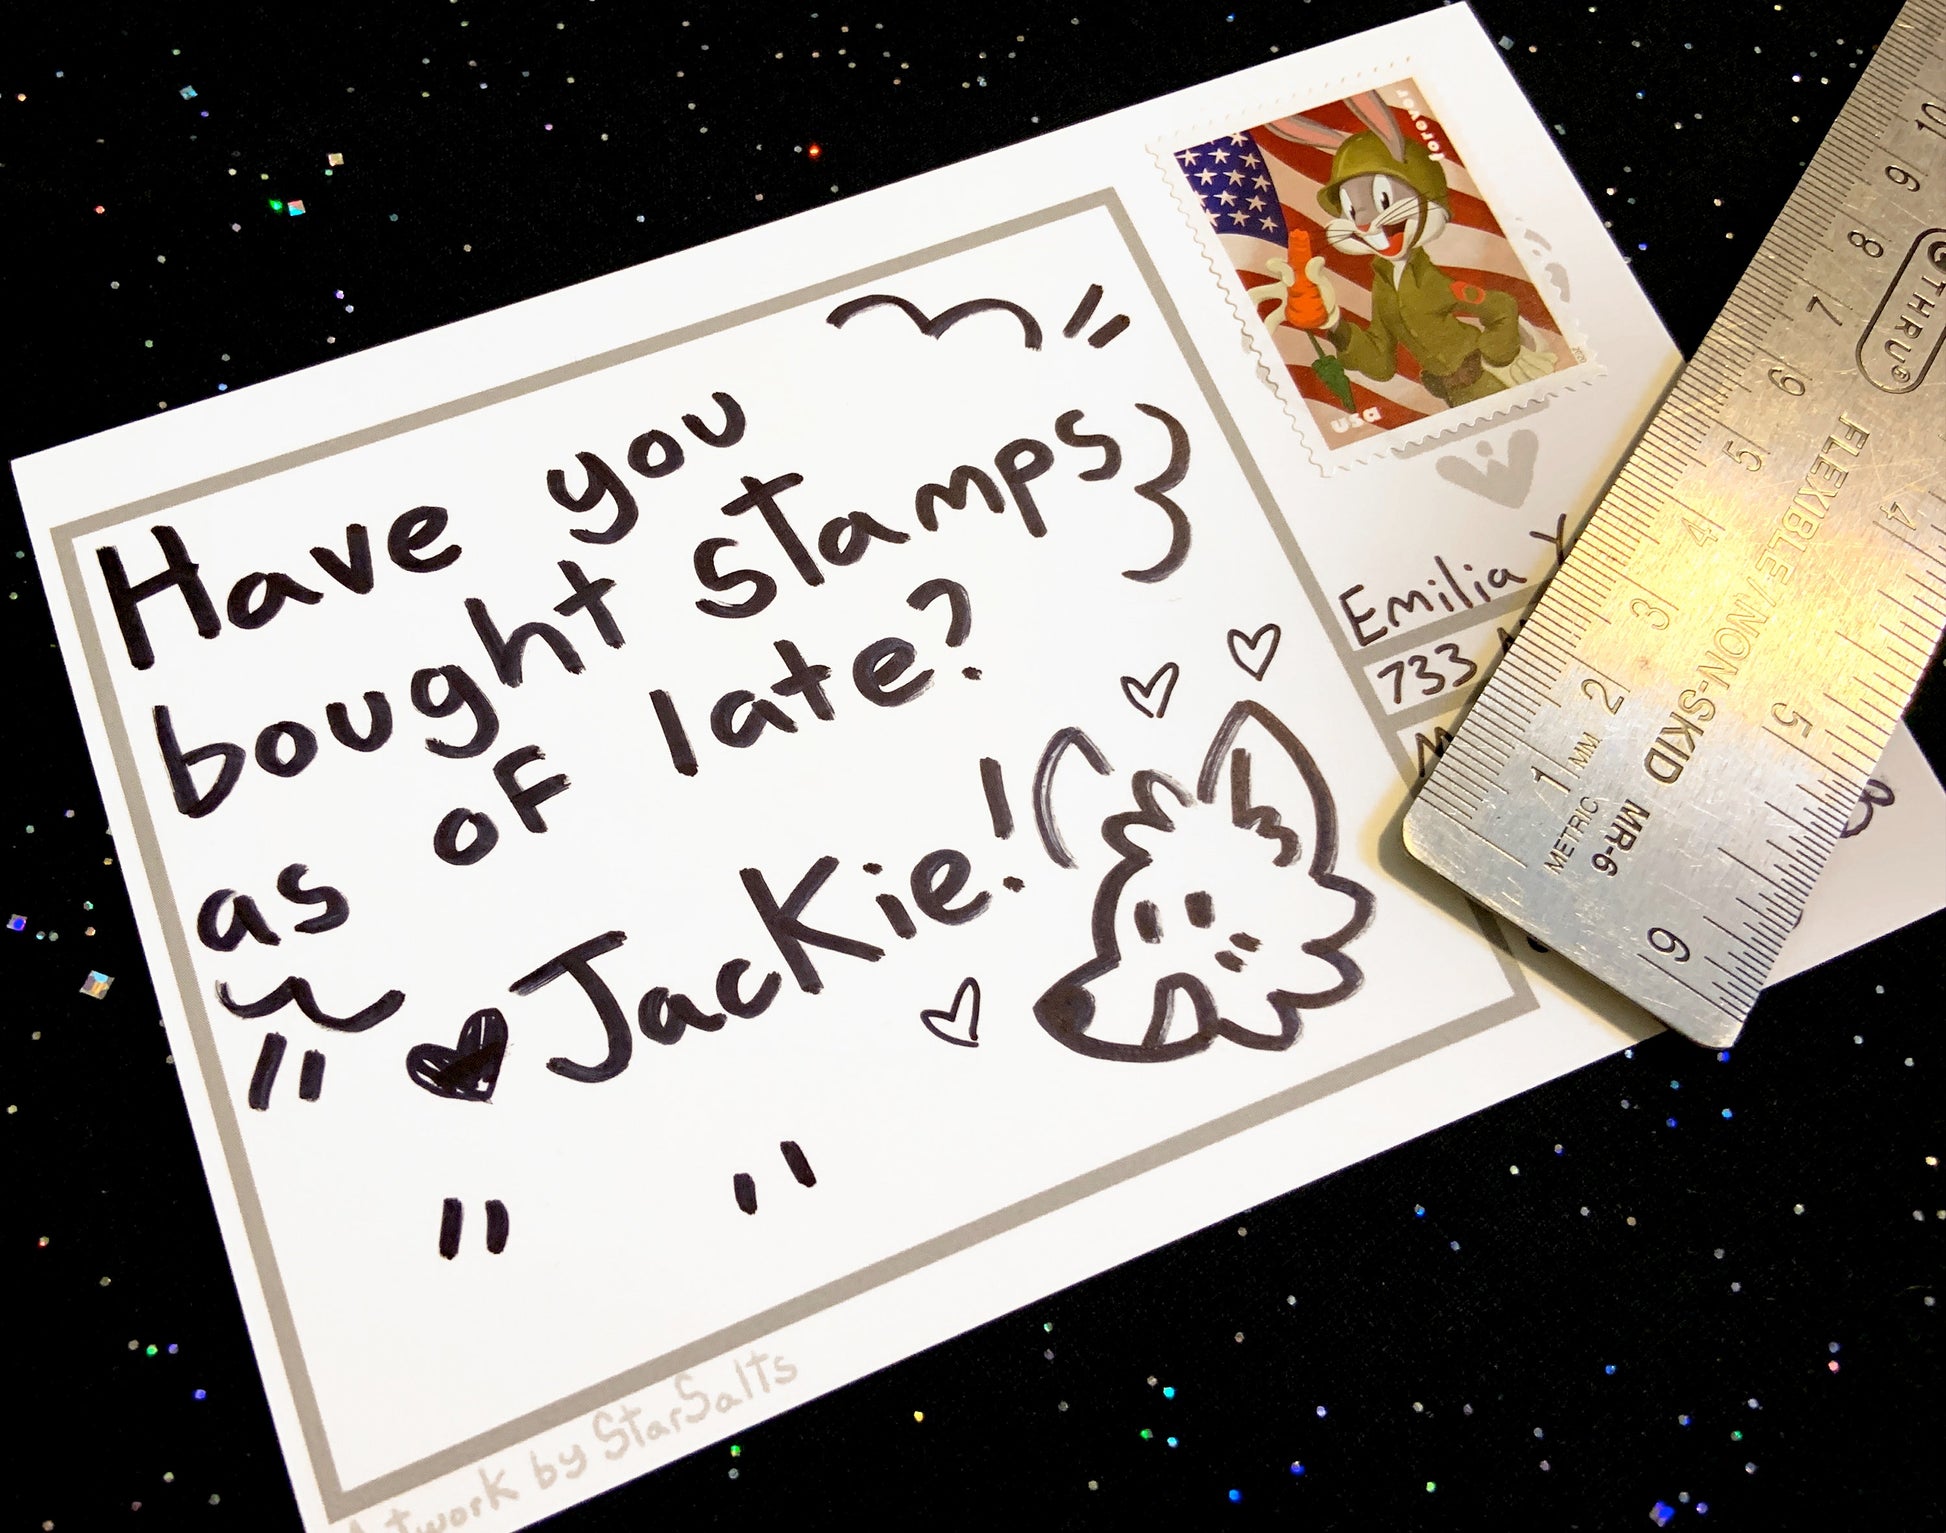 Have you
bought stamps
as of late?
Jackie!
Artwork by StarSalts
forever
USA
Emilia Y
733
M
THRU®
FLEXIBLE/NON-SKID
MR-6
METRIC
MM
1 2 3 4 5 6 7 8 9 10
6 5 4